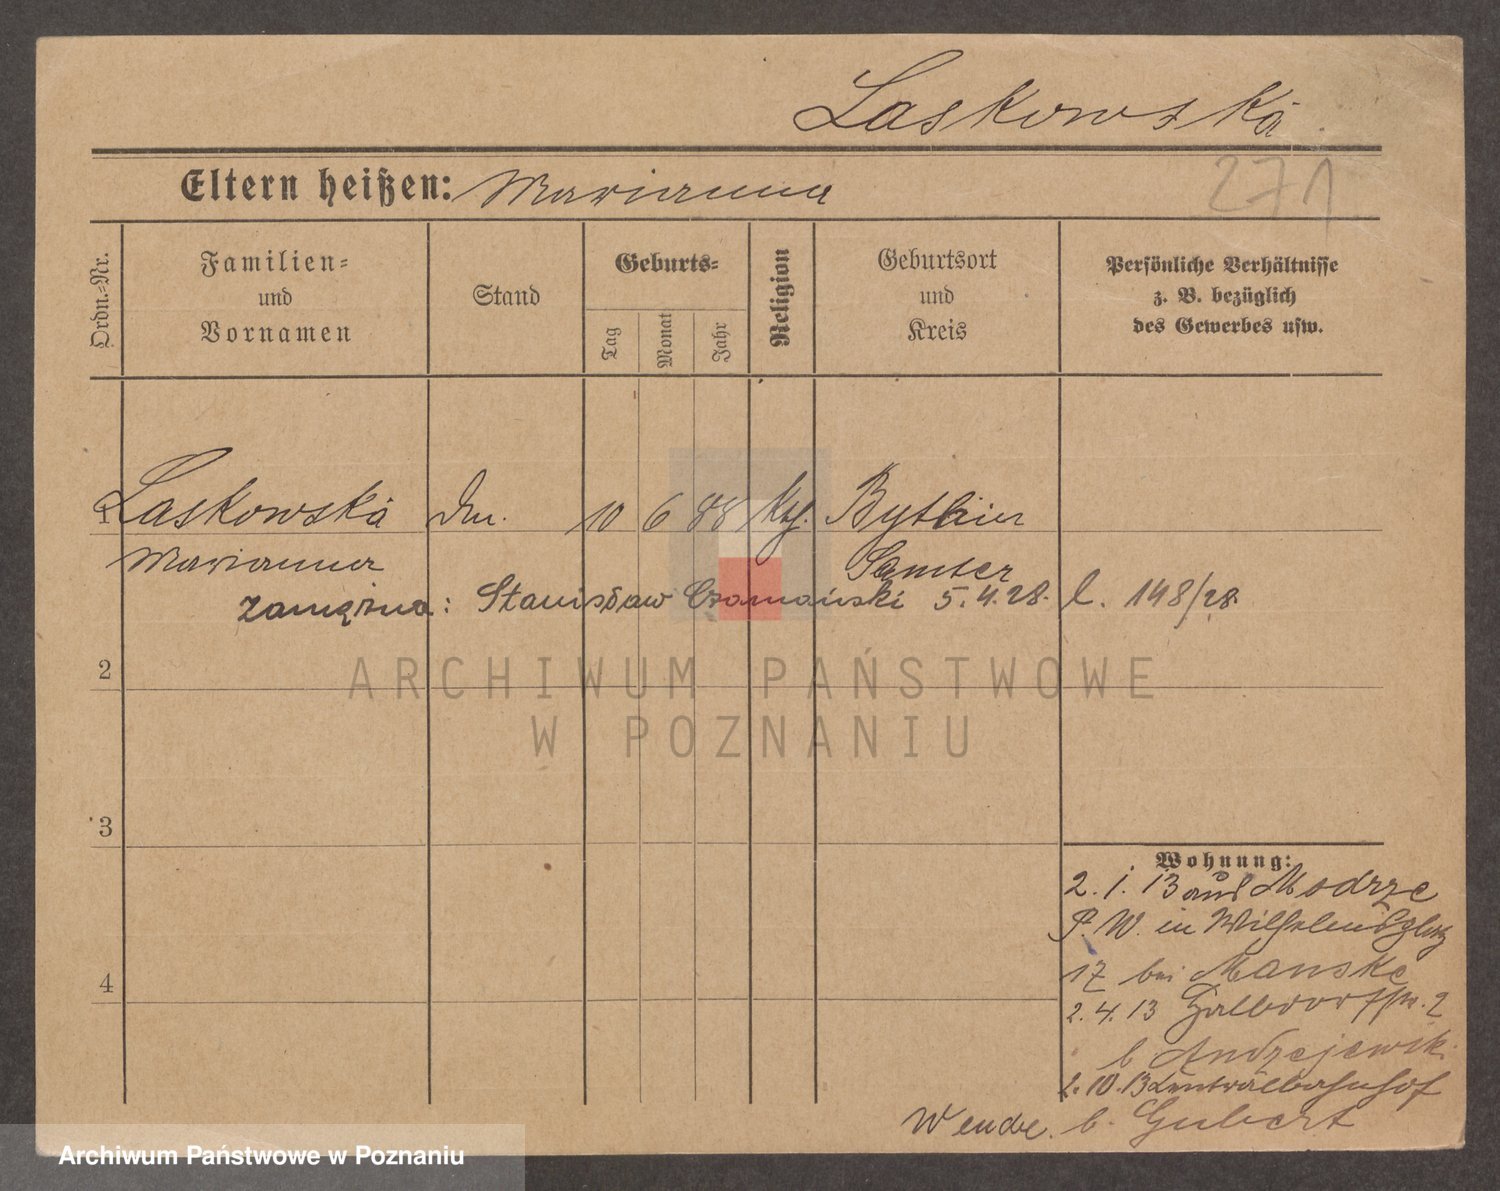 Laskowska
Eltern heißen: Marianna
271
Ordn.-Nr.
Familien-
und
Vornamen
Stand
Geburts-
Tag
Monat
Jahr
Religion
Geburtsort
und
Kreis
Persönliche Verhältnisse
z. B. bezüglich
des Gewerbes usw.
1 Laskowska Dm. 10 6 88 kth. Bythin
Marianna Samter
zamężna: Stanisław Czomański 5.4.28. l. 148/28.
ARCHIWUM PAŃSTWOWE
W POZNANIU
2
3
4
Wohnung:
2. 1. 13 aus Modrze
P. W. in Wilhelmsplatz
17 bei Manske
2. 4. 13 Halbdorfstr. 2
b Andrzejewsk.
2. 10. 13 Zentralbahnhof
Wende. b. Gubert
Archiwum Państwowe w Poznaniu